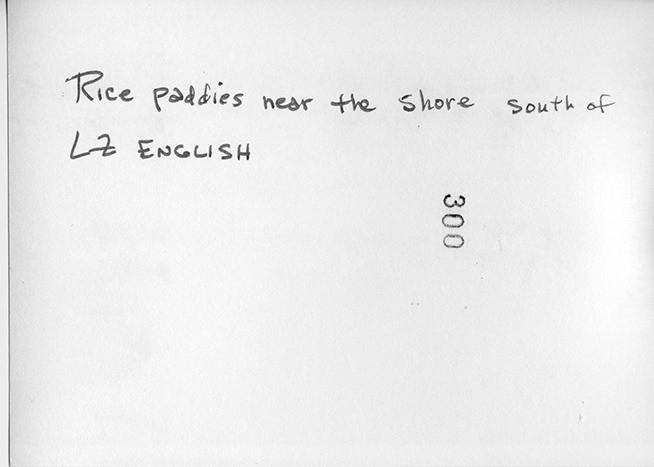 Rice paddies near the shore south of
LZ ENGLISH
300